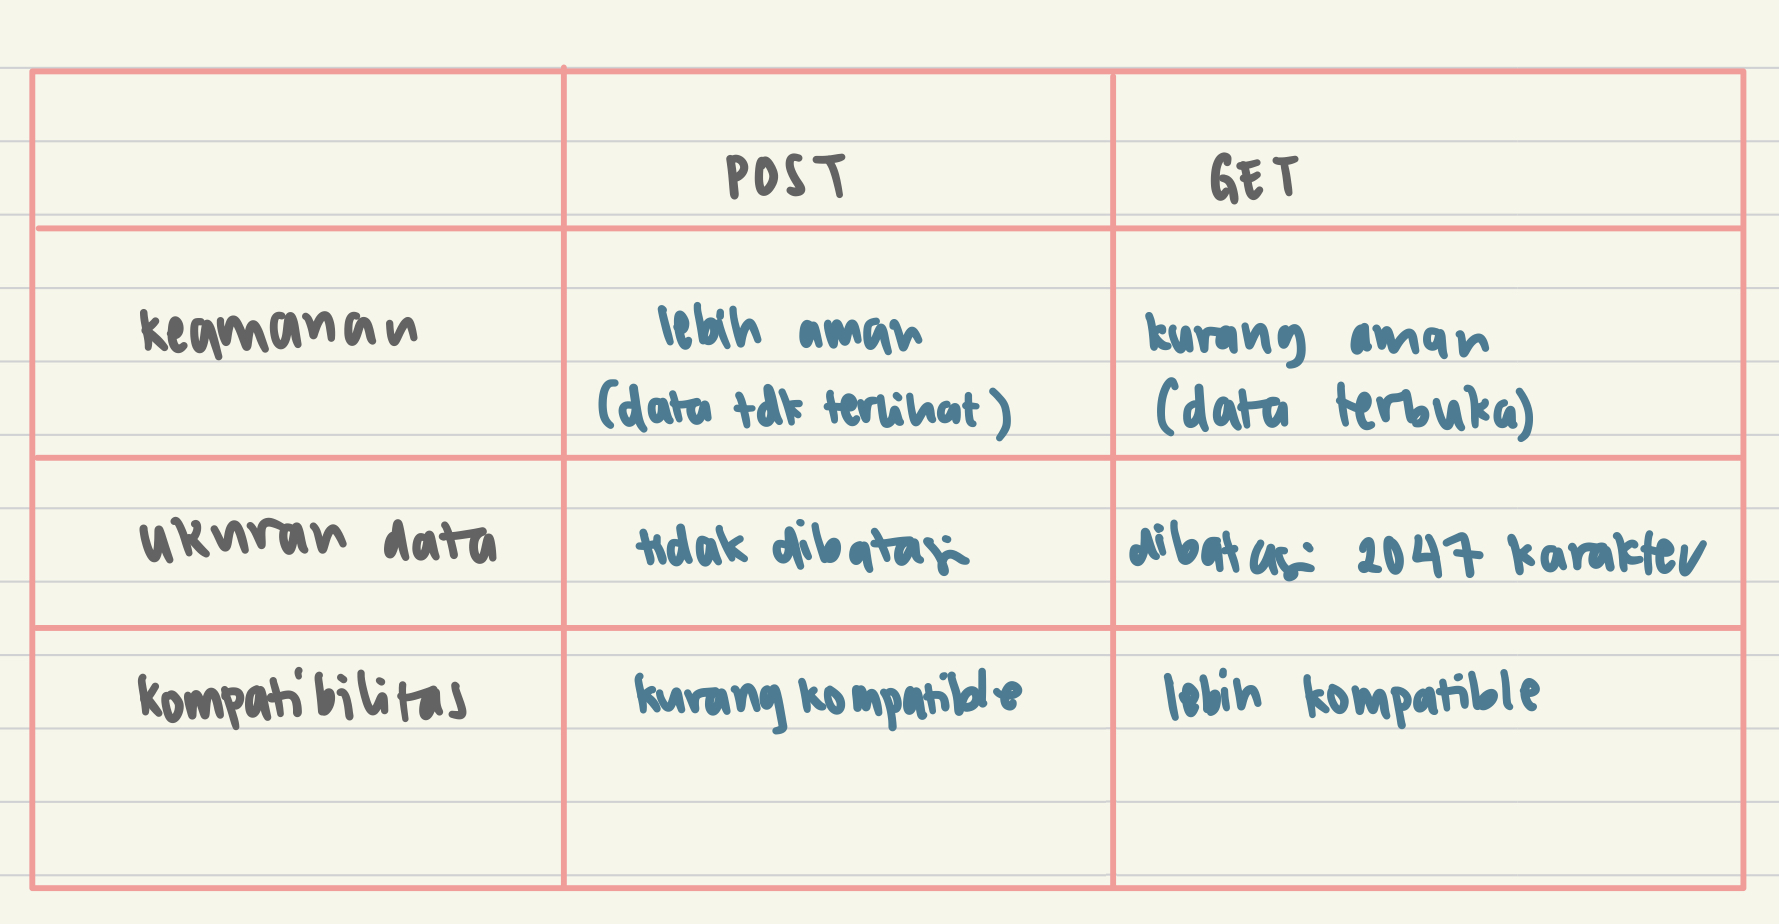 POST GET
keamanan lebih aman kurang aman
(data tdk terlihat) (data terbuka)
ukuran data tidak dibatasi dibatasi 2047 karakter
kompatibilitas kurang kompatible lebih kompatible